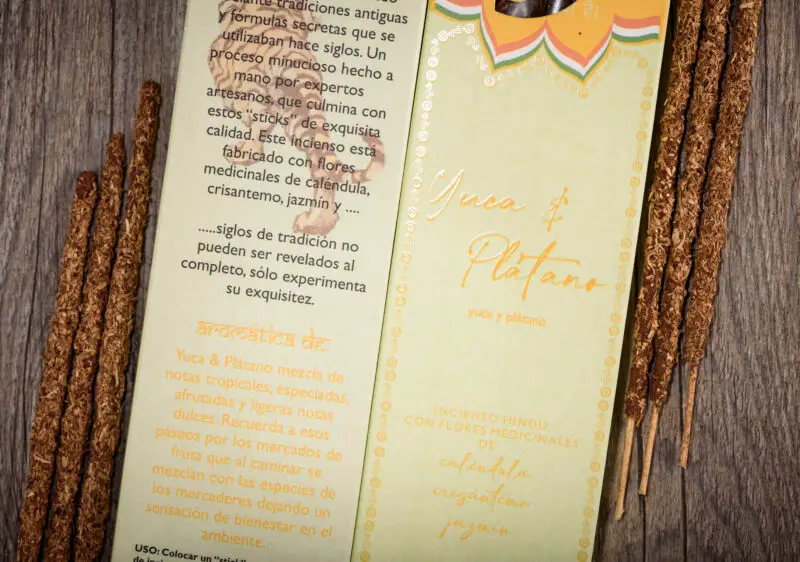 tradiciones antiguas
y fórmulas secretas que se
utilizaban hace siglos. Un
proceso minucioso hecho a
mano por expertos
artesanos, que culmina con
estos "sticks" de exquisita
calidad. Este incienso está
fabricado con flores
medicinales de caléndula,
crisantemo, jazmín y ....
.....siglos de tradición no
pueden ser revelados al
completo, sólo experimenta
su exquisitez.
aromática de:
Yuca & Plátano mezcla de
notas tropicales, especiadas,
afrutadas y ligeras notas
dulces. Recuerda a esos
paseos por los mercados de
fruta que al caminar se
mezclan con las especies de
los mercaderes dejando un
sensación de bienestar en el
ambiente..
USO: Colocar un "stick"
Yuca &
Plátano
yuca y plátano
INCIENSO HINDU
CON FLORES MEDICINALES
DE
caléndula
crisántemo
jazmín